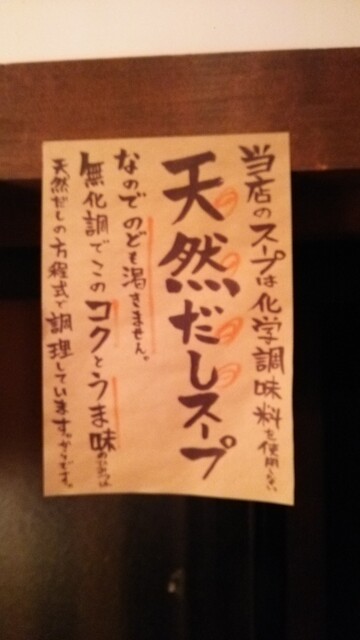 当店のスープは化学調味料を使用しない
天然だしスープ
なのでのども渇きません。
無化調でこのコクとうま味のひみつは
天然だしの方程式で調理しています。からです。